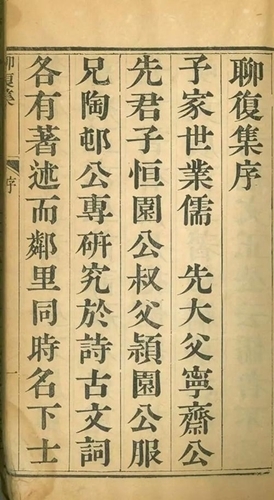 聊復集序
子家世業儒 先大父寧齋公
先君子恒園公叔父穎園公服
兄陶邨公專研究於詩古文詞
各有著述而鄰里同時名下士
聊復集
序
一